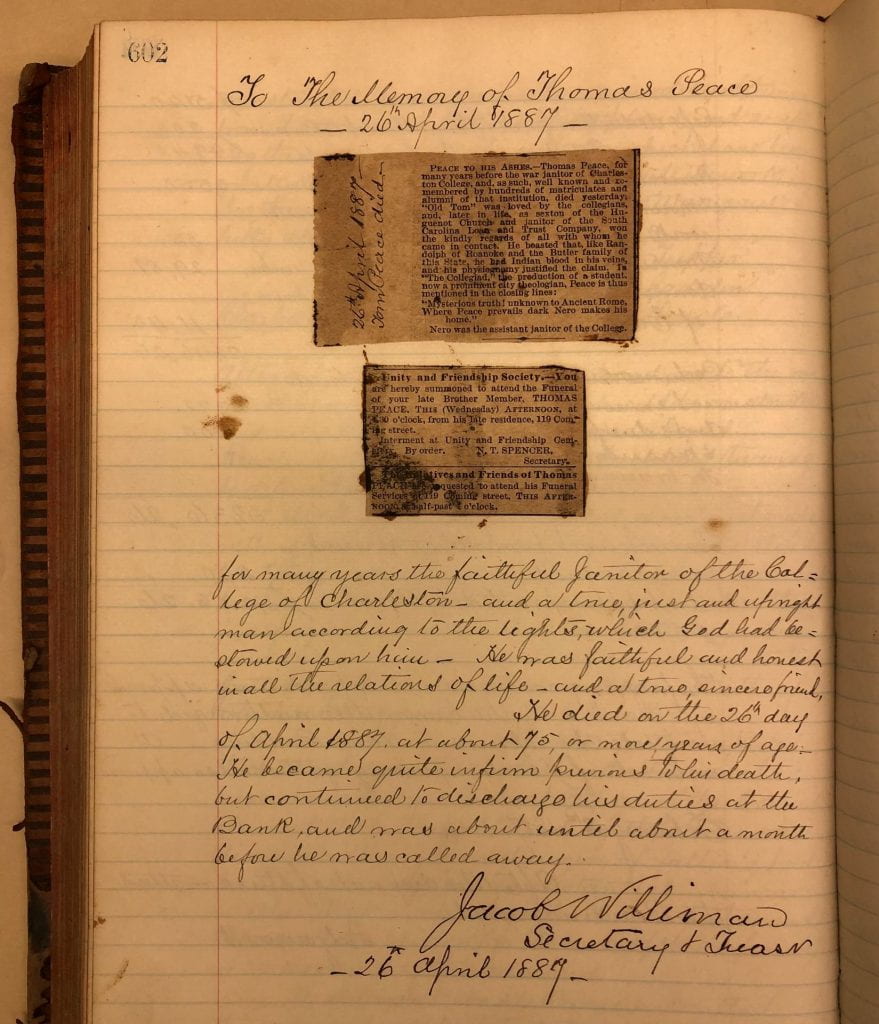 602
To The Memory of Thomas Peace
— 26th April 1887 —
26th April 1887—
Tom Peace died.—
PEACE TO HIS ASHES.—Thomas Peace, for
many years before the war janitor of Charles-
ton College, and, as such, well known and re-
membered by hundreds of matriculates and
alumni of that institution, died yesterday.
"Old Tom" was loved by the collegians,
and, later in life, as sexton of the Hu-
guenot Church and janitor of the South
Carolina Loan and Trust Company, won
the kindly regards of all with whom he
came in contact. He boasted that, like Ran-
dolph of Roanoke and the Butler family of
this State, he had Indian blood in his veins,
and his physiognomy justified the claim. In
"The Collegiad," the production of a student,
now a prominent city theologian, Peace is thus
mentioned in the closing lines:
"Mysterious truth! unknown to Ancient Rome,
Where Peace prevails dark Nero makes his
home."
Nero was the assistant janitor of the College.
Unity and Friendship Society.—You
are hereby summoned to attend the Funeral
of your late Brother Member, THOMAS
PEACE, THIS (Wednesday) AFTERNOON, at
o'clock, from his late residence, 119 Com-
ing street.
Interment at Unity and Friendship Cem-
By order. N. T. SPENCER,
Secretary.
The Relatives and Friends of Thomas
PEACE are requested to attend his Funeral
Services at 119 Coming street, THIS AFTER-
NOON at half-past 4 o'clock.
for many years the faithful Janitor of the Col=
lege of Charleston — and a true, just and upright
man according to the lights, which God had be=
stowed upon him — He was faithful and honest
in all the relations of life — and a true, sincere friend,
He died on the 26th day
of April 1887. at about 75, or more, years of age.—
He became quite infirm previous to his death,
but continued to discharge his duties at the
Bank, and was about until about a month
before he was called away.
Jacob Williman
Secretary & Treasr
— 26th April 1887 —